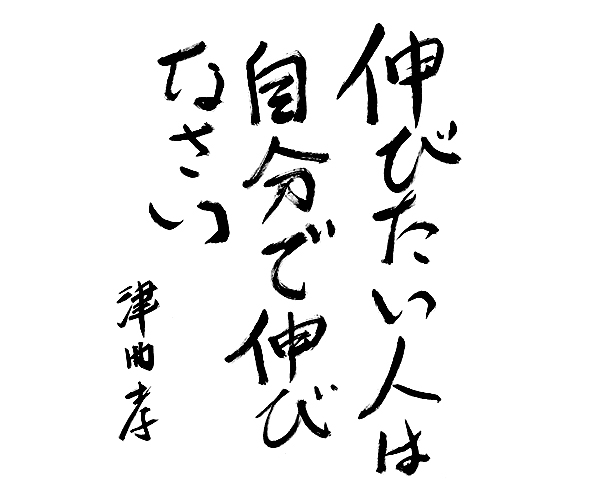 伸びたい人は
自分で伸び
なさい
津曲孝